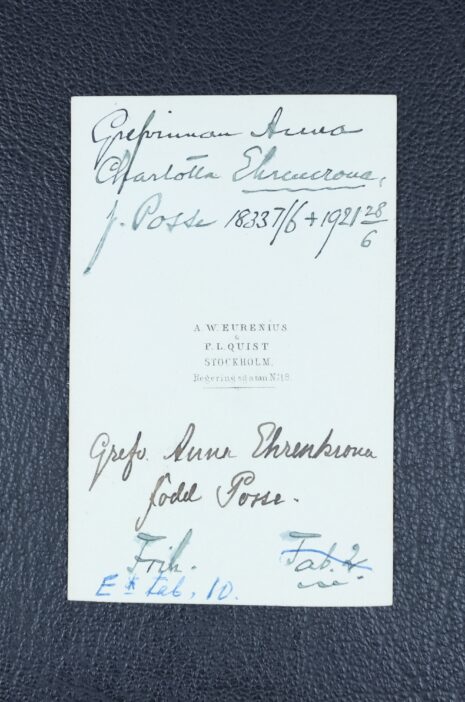 Grefvinnan Anna
Charlotta Ehrencrona,
f. Posse 1833 7/6 + 1921 28/6
A. W. EURENIUS
&
P. L. QUIST
STOCKHOLM.
Regeringsgatan No 18.
Grefv. Anna Ehrenkrona
född Posse.
Frih. Tab. 2
E Tab. 10.